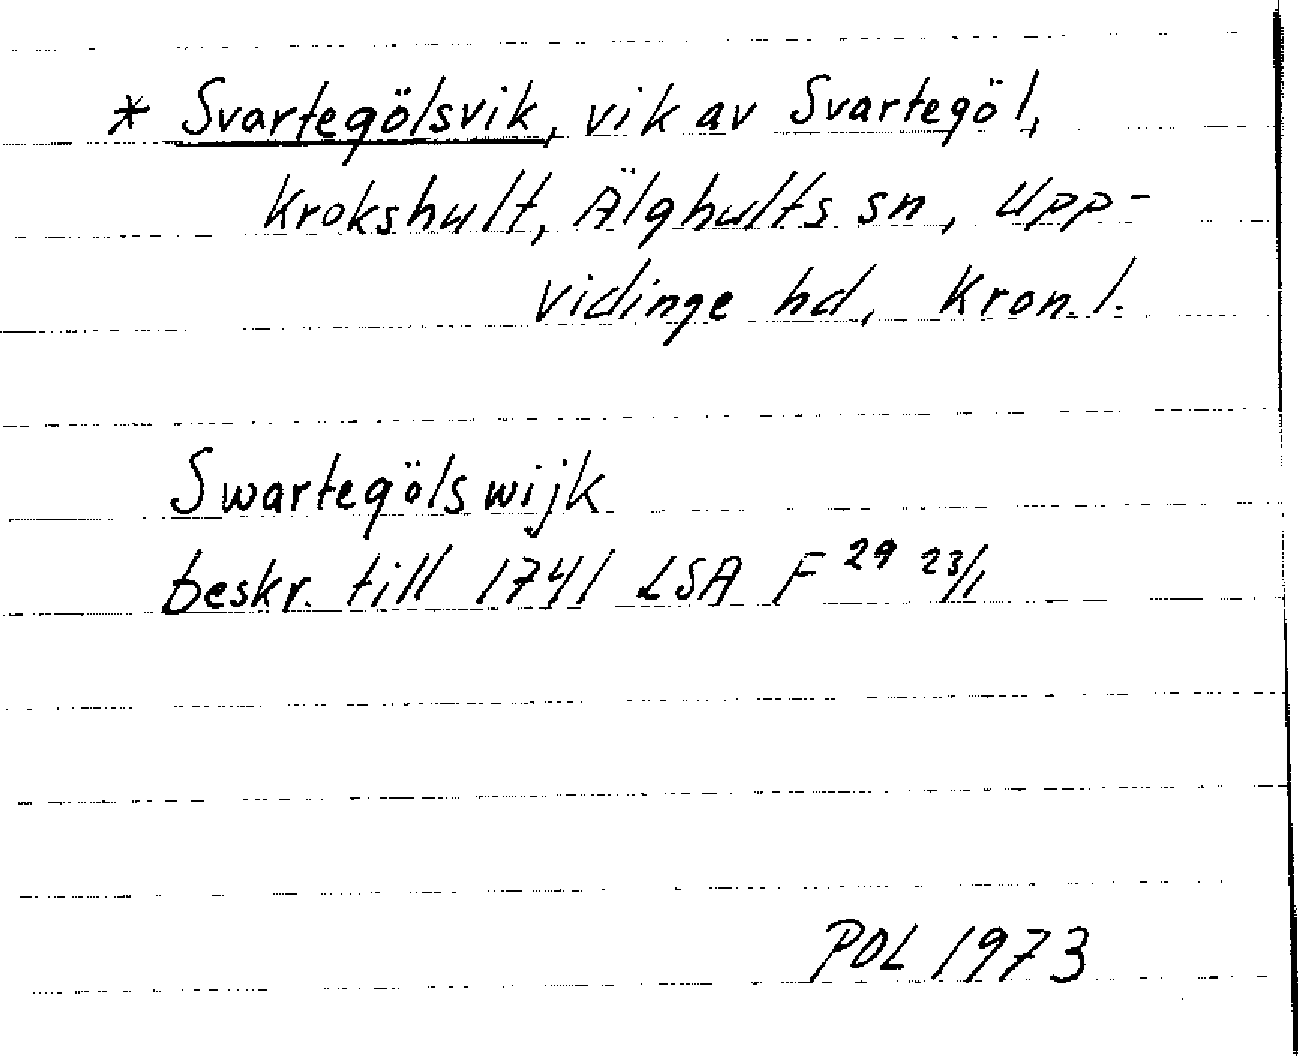 * Svartegölsvik, vik av Svartegöl,
Krokshult, Älghults sn, Upp-
vidinge hd, Kron. l.
Swartegölswijk
beskr. till 1741 LSA F 29 23/1
POL 1973